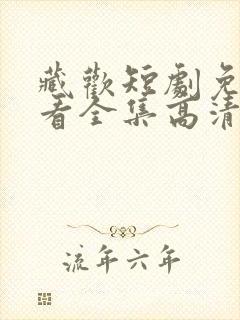 藏歡短劇免
看全集高清
流年六年